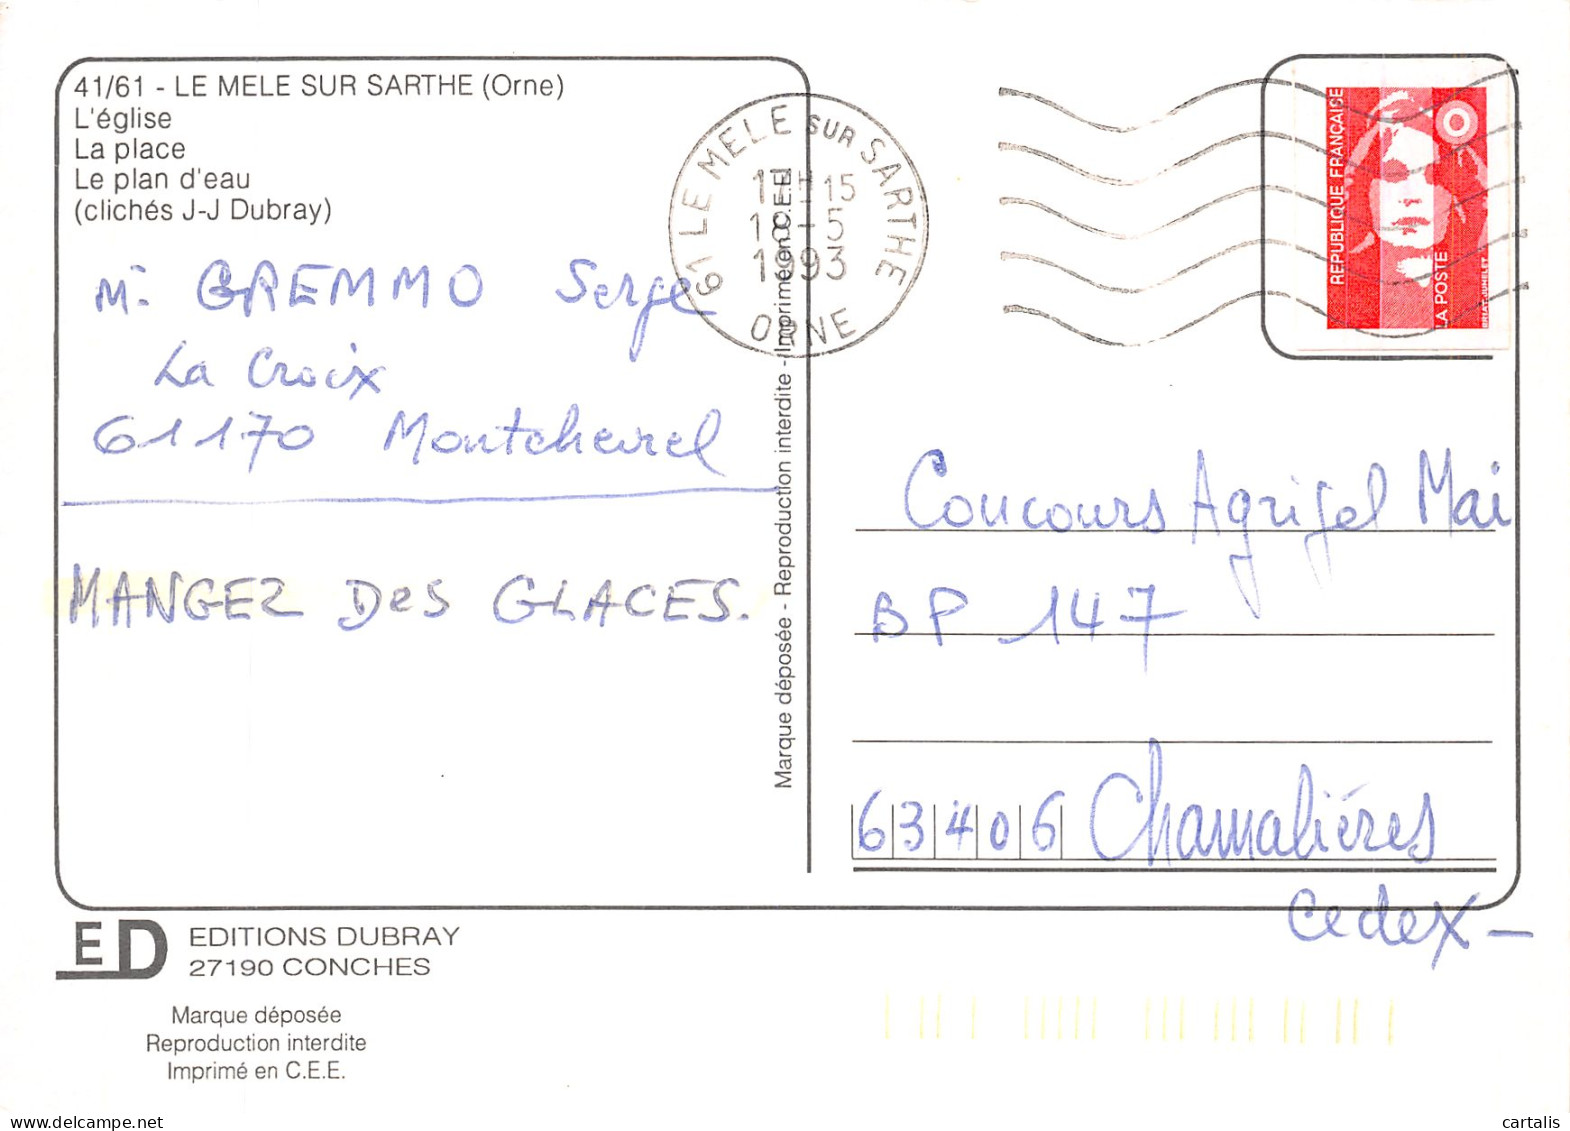 41/61 - LE MELE SUR SARTHE (Orne)
L'église
La place
Le plan d'eau
(clichés J-J Dubray)
61 LE MELE SUR SARTHE
15
18-5
1993
ORNE
REPUBLIQUE FRANÇAISE
LA POSTE
BRIAT-JUMELET
Mr GREMMO Serge
La Croix
61170 Montchevrel
MANGEZ DES GLACES.
Marque déposée - Reproduction interdite - Imprimé en C.E.E.
Concours Agrigel Mai
BP 147
63406 Chamalières
Cedex -
ED
EDITIONS DUBRAY
27190 CONCHES
Marque déposée
Reproduction interdite
Imprimé en C.E.E.
cartalis